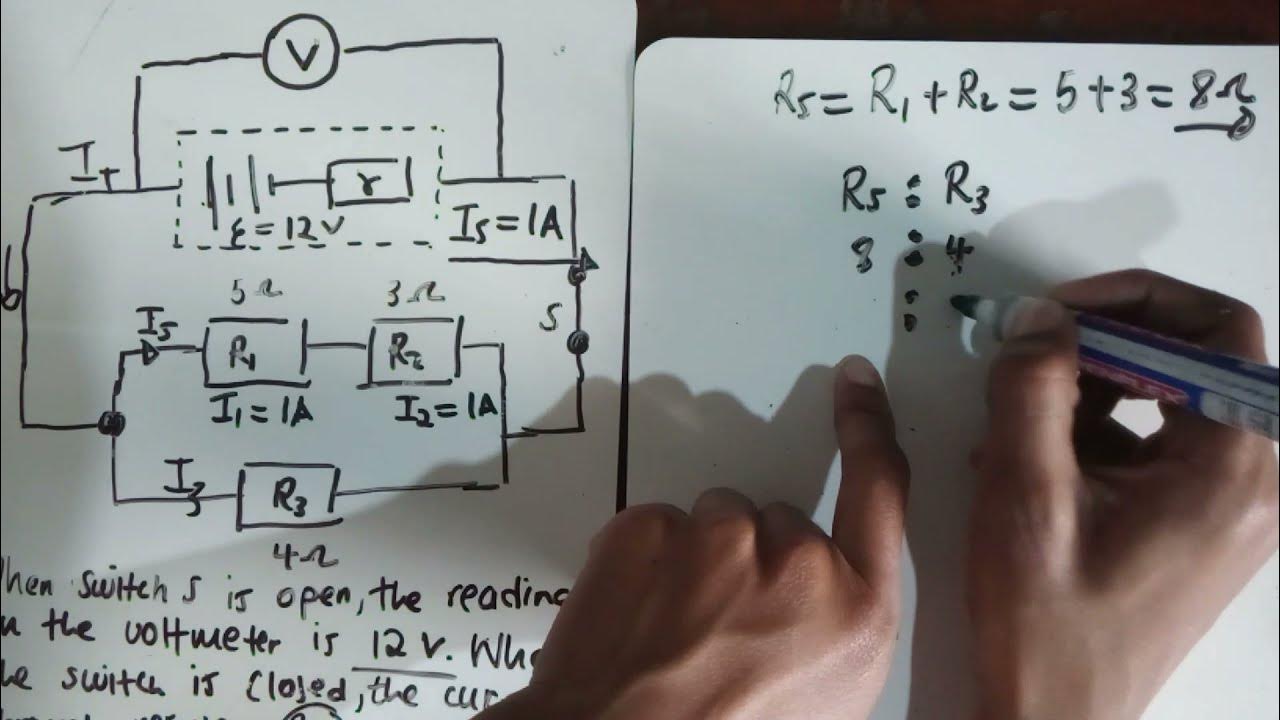 V
I_T
r
ε = 12 V
I_S = 1A
5Ω
3Ω
S
I_S
R₁
R₂
I₁ = 1A
I₂ = 1A
I₃
R₃
4Ω
hen switch S is open, the reading
n the voltmeter is 12 V. Whe
he switch is closed, the cur
R_S = R₁ + R₂ = 5 + 3 = 8Ω
R_S : R₃
8 : 4
: